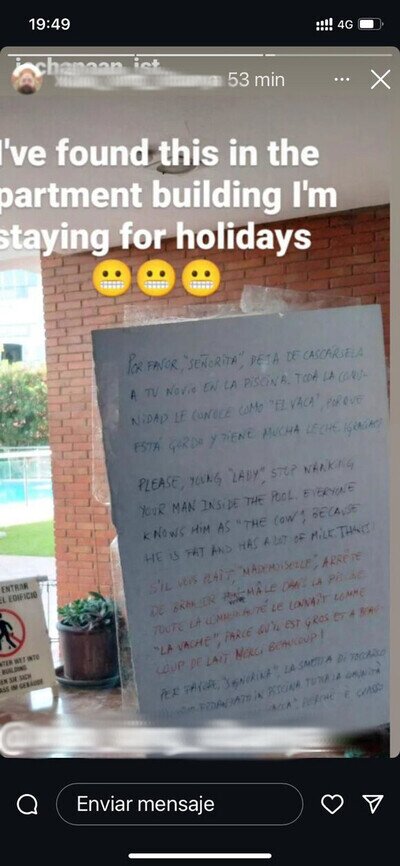 19:49
4G
53 min
I've found this in the
partment building I'm
staying for holidays
POR FAVOR, "SEÑORITA", DEJA DE CASCARSELA
A TU NOVIO EN LA PISCINA. TODA LA COMU-
NIDAD LE CONOCE COMO "EL VACA", PORQUE
ESTÁ GORDO Y TIENE MUCHA LECHE. ¡GRACIAS!
PLEASE, YOUNG "LADY", STOP WANKING
YOUR MAN INSIDE THE POOL. EVERYONE
KNOWS HIM AS "THE COW", BECAUSE
HE IS FAT AND HAS A LOT OF MILK. THANKS!
S'IL VOUS PLAÎT, "MADEMOISELLE", ARRÊTE
DE BRANLER MÂLE DANS LA PISCINE
TOUTE LA COMMUNAUTÉ LE CONNAÎT COMME
"LA VACHE", PARCE QU'IL EST GROS ET A BEAU-
COUP DE LAIT MERCI BEAUCOUP!
PER FAVORE, "SIGNORINA", LA SMETTA DI TOCCARSO
IN PISCINA TUTTA LA COMUNITÀ
PERCHÉ È GRASSO
ENTRAR
EL EDIFICIO
ENTER WET INTO
BUILDING
EN SIE SICH
ASS IM GEBÄUDE
Enviar mensaje